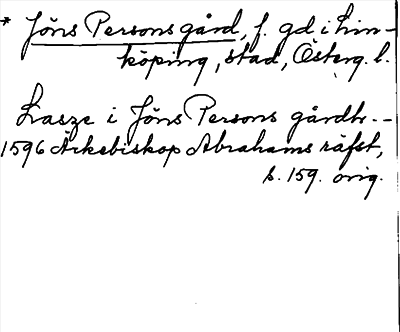 * Jöns Persons gård, f. gd i Lin-
köping, stad, Österg. l.
Lasze i Jöns Persons gårdh. -
1596 Ärkebiskop Abrahams räfst,
s. 159. orig.